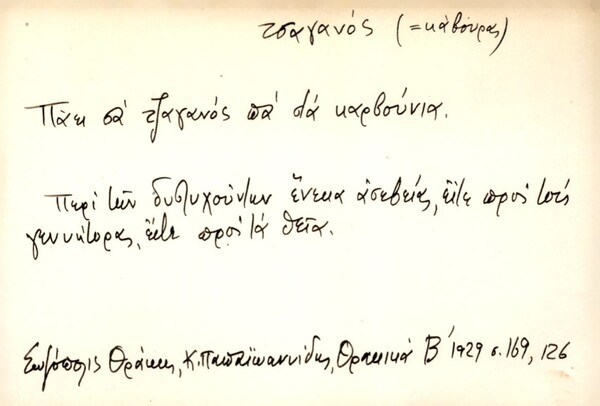 τσαγανός (=κάβουρας)
Πάει σά τζαγανός πά' στά καρβούνια.
Περί τῶν δυστυχούντων ἕνεκα ἀσεβείας, εἴτε πρός τούς
γεννήτορας, εἴτε πρός τά θεῖα.
Σωζόπολις Θράκης, Κ. Παπαϊωαννίδης, Θρακικά Β' 1929 σ. 169, 126